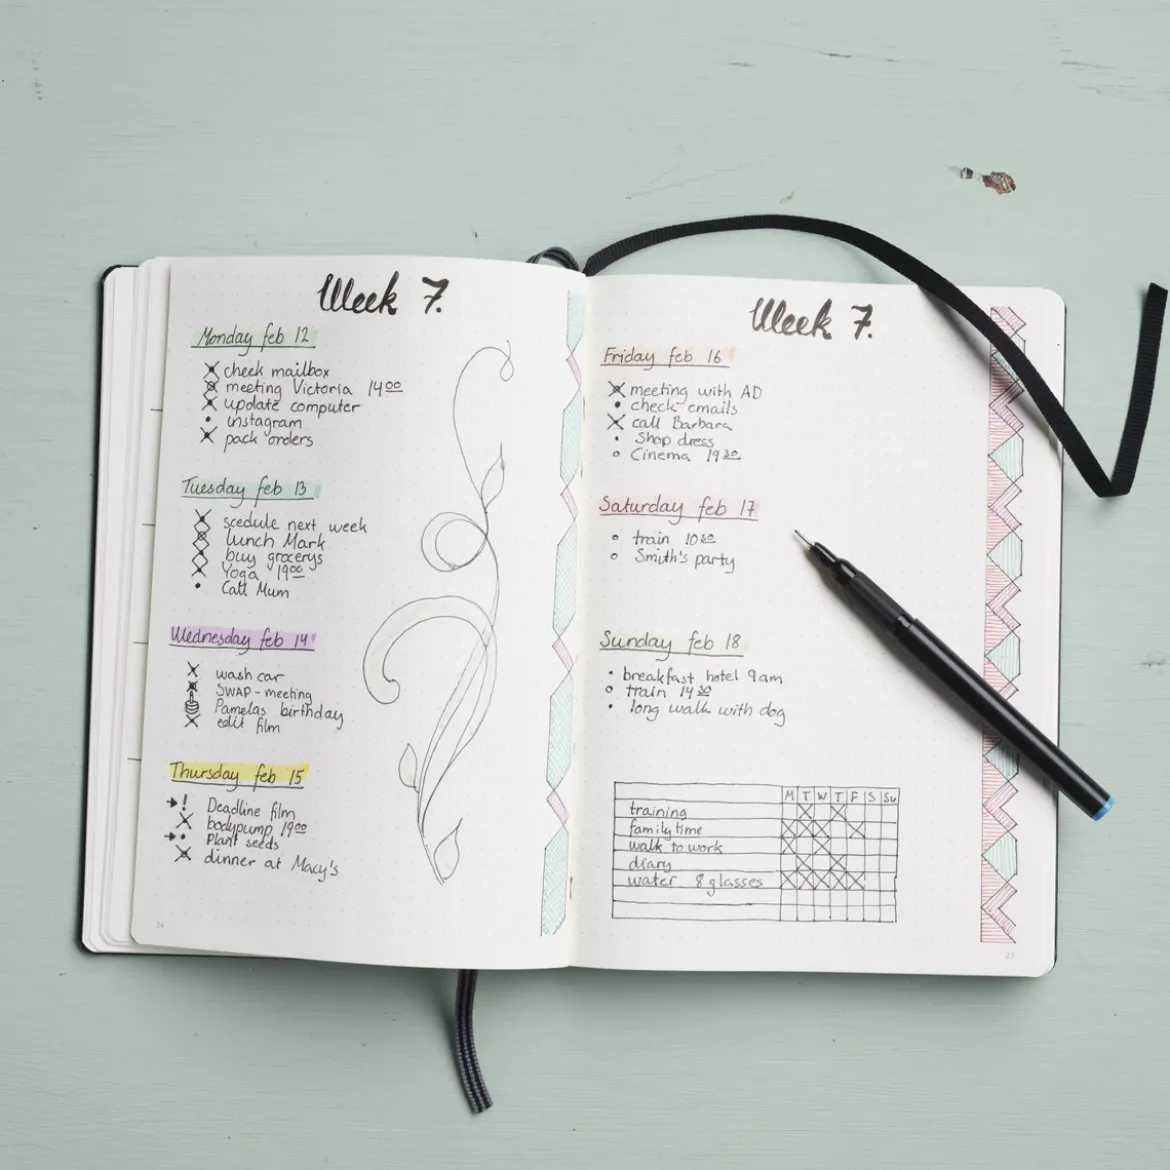 Week 7.
Monday feb 12
check mailbox
meeting Victoria 14⁰⁰
update computer
instagram
pack orders
Tuesday feb 13
scedule next week
lunch Mark
buy grocerys
Yoga 19⁰⁰
Call Mum
Wednesday feb 14
wash car
SWAP-meeting
Pamelas birthday
edit film
Thursday feb 15
! Deadline film
bodypump 19⁰⁰
Plant seeds
dinner at Macy's
24
Week 7.
Friday feb 16
meeting with AD
check emails
call Barbara
Shop dress
Cinema 19³⁰
Saturday feb 17
train 10³⁰
Smith's party
Sunday feb 18
breakfast hotel 9am
train 14³⁰
long walk with dog
M T W T F S Su
training
family time
walk to work
diary
water 8 glasses